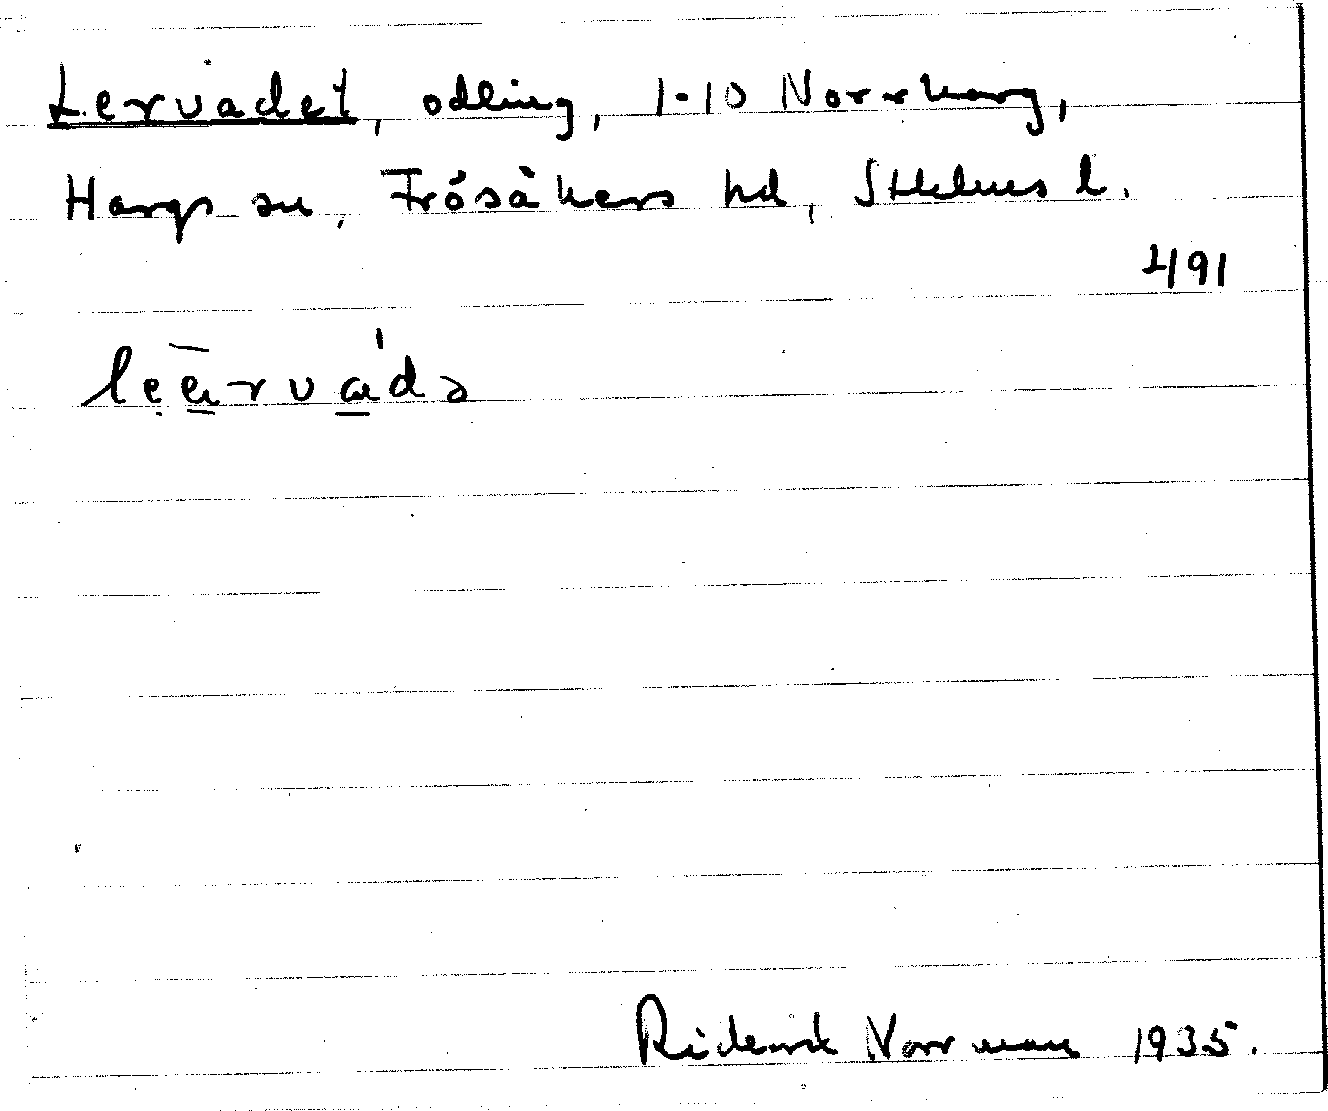 Lervadet, odling, 1-10 Norrharg,
Hargs sn, Frösåkers hd, Sthlms l.
491
leärvádə
Ridendt Norrman 1935.